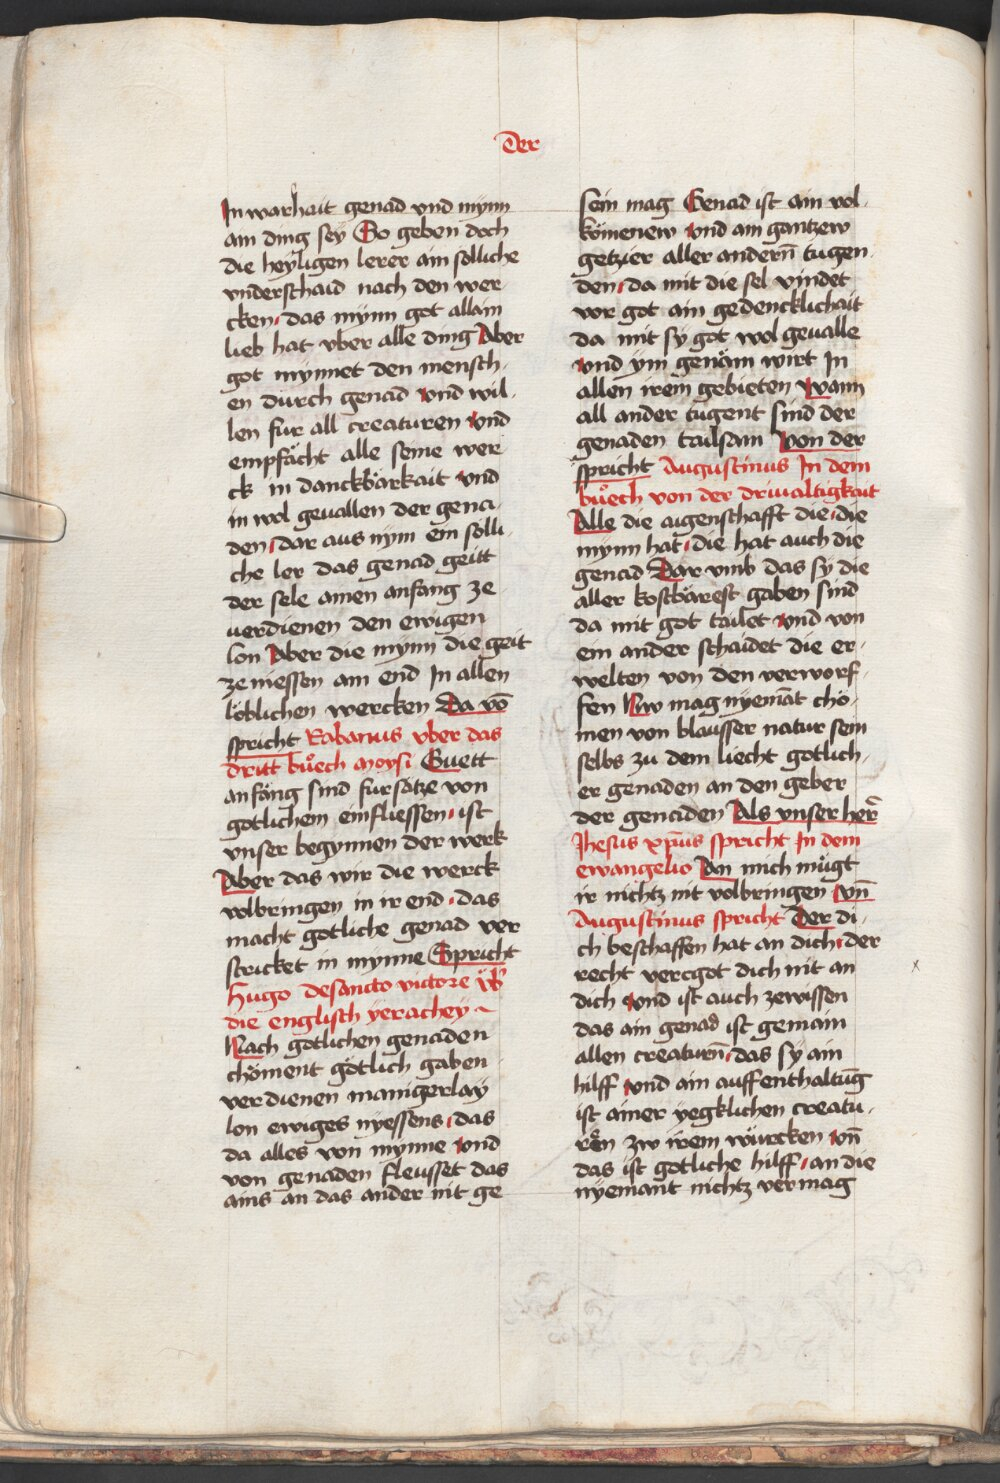 Der
In warhait genad vnd mynn
ain ding sey So geben doch
die heyligen lerer ain solliche
vnderschaid nach den wer-
cken das mynn got allain
lieb hat vber alle ding Aber
got mynnet den mensch-
en durch genad vnd wil-
len fur all creaturen vnd
empfächt alle seine wer
ck in danckbärkait vnd
in wol geuallen der gena-
den dar aus nym ein solli-
che ler das genad geitt
der sele ainen anfang ze
uerdienen den ewigen
lon Aber die mynn die geit
ze niessen am end In allen
löblichen wercken Da vō
spricht Rabanus vber das
dritt bůech moysi Guett
anfäng sind fursätze von
gotlichem einfliessen ist
vnser begynnen der werk
Aber das wir die werck
volbringen in ir end das
macht gotliche genad ver
stricket in mynne Spricht
Hugo desancto victore v̈b
die englisch yerachey
Nach gotlichen genaden
chöment götlich gaben
verdienen manigerlay
lon ewiges nyessens das
da alles von mynne vnd
von genaden fleusset das
ains an das ander nit ge
sein mag Genad ist ain vol-
kömenew vnd ain gantzew
getzier aller andern̄ tugen-
den da mit die sel vindet
vor got ain gedencklichait
da mit sy got wol geualle
vnd ym genäm wirt In
allen irem gebieten wann
all ander tugent sind der
genaden tailsam Von der
spricht Augustinus In dem
bůech von der driualtigkait
Alle die aigenschafft die die
mynn hat die hat auch die
genad Dar vmb das sy die
aller kostbärest gaben sind
da mit got tailet vnd von
ein ander schaidet die er-
welten von den verworf-
fen Nw mag nyemāt chö-
men von blausser natur sein
selbs zu dem liecht gotlich-
er genaden an den geber
der genaden Als vnser her̄
Jhesus xp̄us spricht In dem
ewangelio An mich mügt
ir nichtz nit volbringen Vn̄
Augustinus spricht Der di-
ch beschaffen hat an dich der
recht vercgot dich nit an
dich Vnd ist auch zewissen
das ain genad ist gemain
allen creaturn̄ das sy ain
hilff vnd ain auffenthaltūg
ist ainer yegklichen creatu-
ren zw irem würcken vn̄
das ist gotliche hilff an die
nyemant nichtz vermag